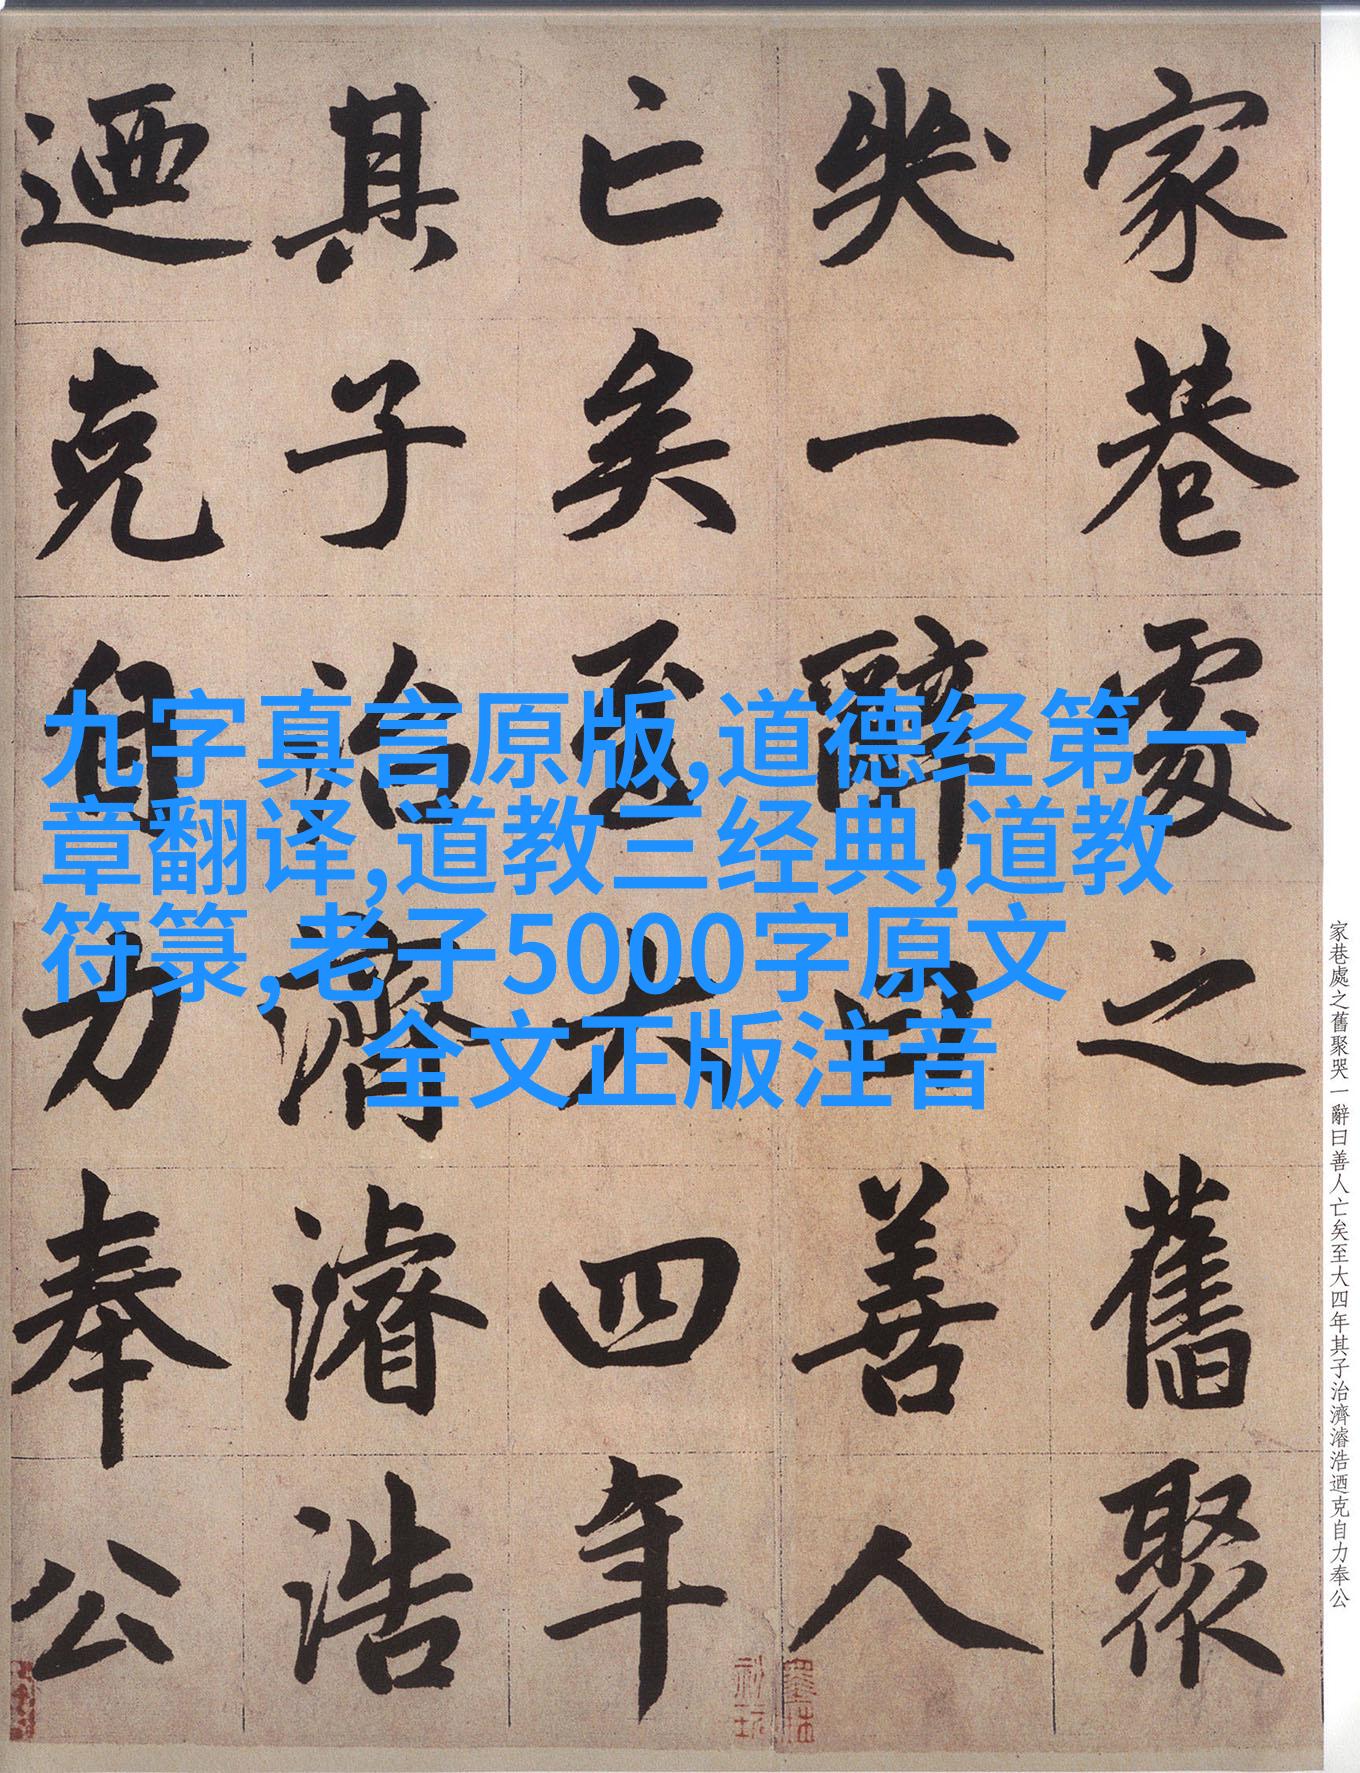 家巷處之舊聚
哭一辭曰善人
亡矣至大四年
其子治濟濬浩
迺克自力奉公
九字真言原版,道德经第一
章翻译,道教三经典,道教
符箓,老子5000字原文
全文正版注音
家巷處之舊聚哭一辭曰善人亡矣至大四年其子治濟濬浩迺克自力奉公
墨林
秘玩